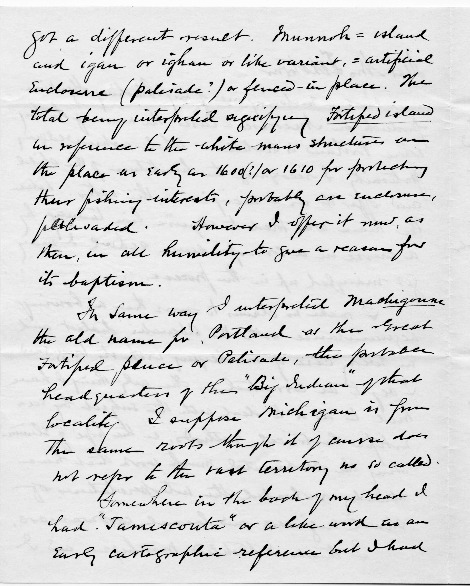 got a different result. Munnoh = island
and igan or ighan or like variant, = artificial
Enclosure (palisade?) or fenced-in place. The
total being interpreted signifying Fortified island
in reference to the white mans structures on
the place as Early as 1600(?) or 1610 for protecting
their fishing interests, probably an enclosure,
palisaded. However I offer it now, as
then, in all humility to give a reason for
its baptism.
In same way I interpreted Machigonne
the old name for Portland as the Great
Fortified place or Palisade, the probable
headquarters of the "Big Indian" of that
locality. I suppose Michigan is from
the same roots though it of course does
not refer to the vast territory so called.
Somewhere in the back of my head I
had "Tamescouta" or a like word as an
Early cartographic reference but I had